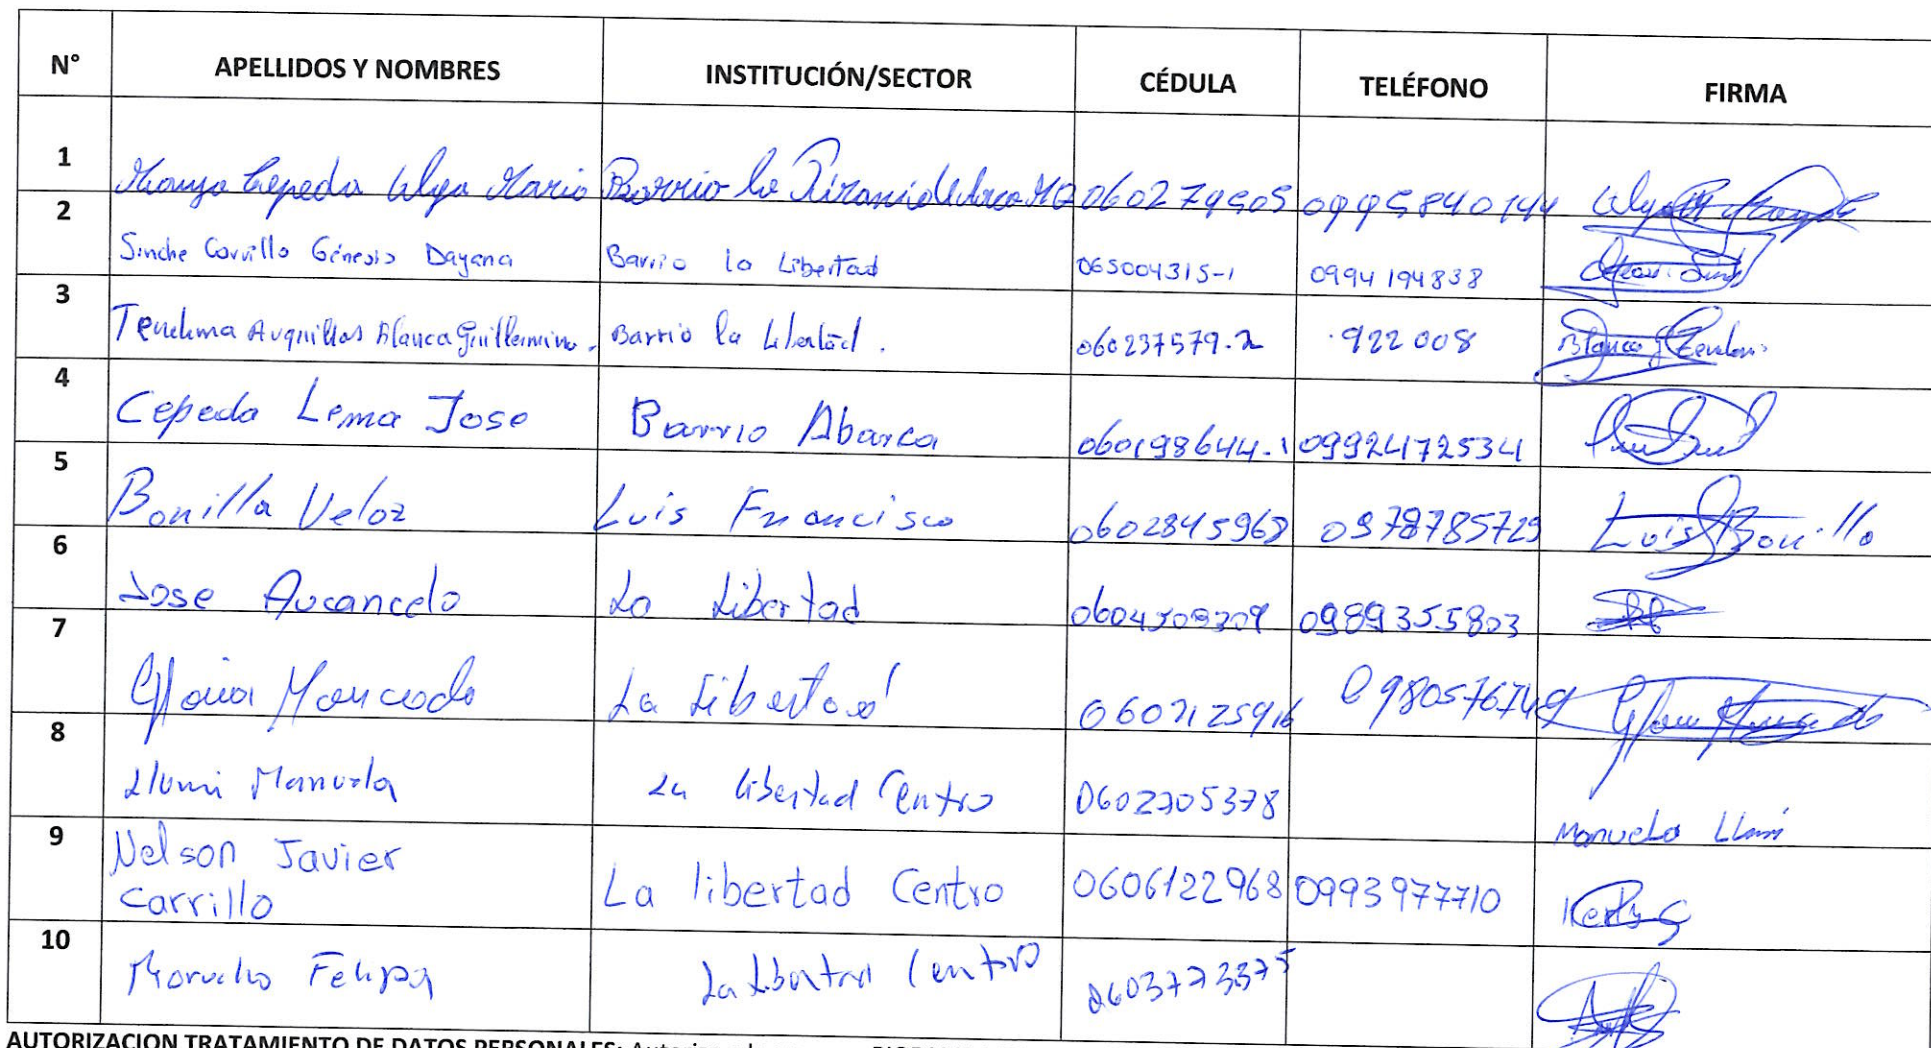 N° APELLIDOS Y NOMBRES INSTITUCIÓN/SECTOR CÉDULA TELÉFONO FIRMA
1 Cepeda Olga Maria Barrio la
2 Sinche Carrillo Génesis Dayana Barrio la Libertad 065004315-1 0994194838
3 Tenelema Auquillas Blanca Guillermina. Barrio la Libertad. 060237579-2 922008
4 Cepeda Lema Jose Barrio Abarca 060198644-1 0992472534
5 Bonilla Veloz Luis Francisco 0602845968 0978785729 Luis Bonillo
6 Jose Aucancela La Libertad 0989355803
7 Gloria Moncada La Libertad 0980576749
8 Llumi Manuela La libertad Centro 0602705378 Manuela Llumi
9 Nelson Javier
Carrillo La libertad Centro 0606122968 0993977710
10 Morocho Felipa La Libertad Centro 0603773375
AUTORIZACION TRATAMIENTO DE DATOS PERSONALES: